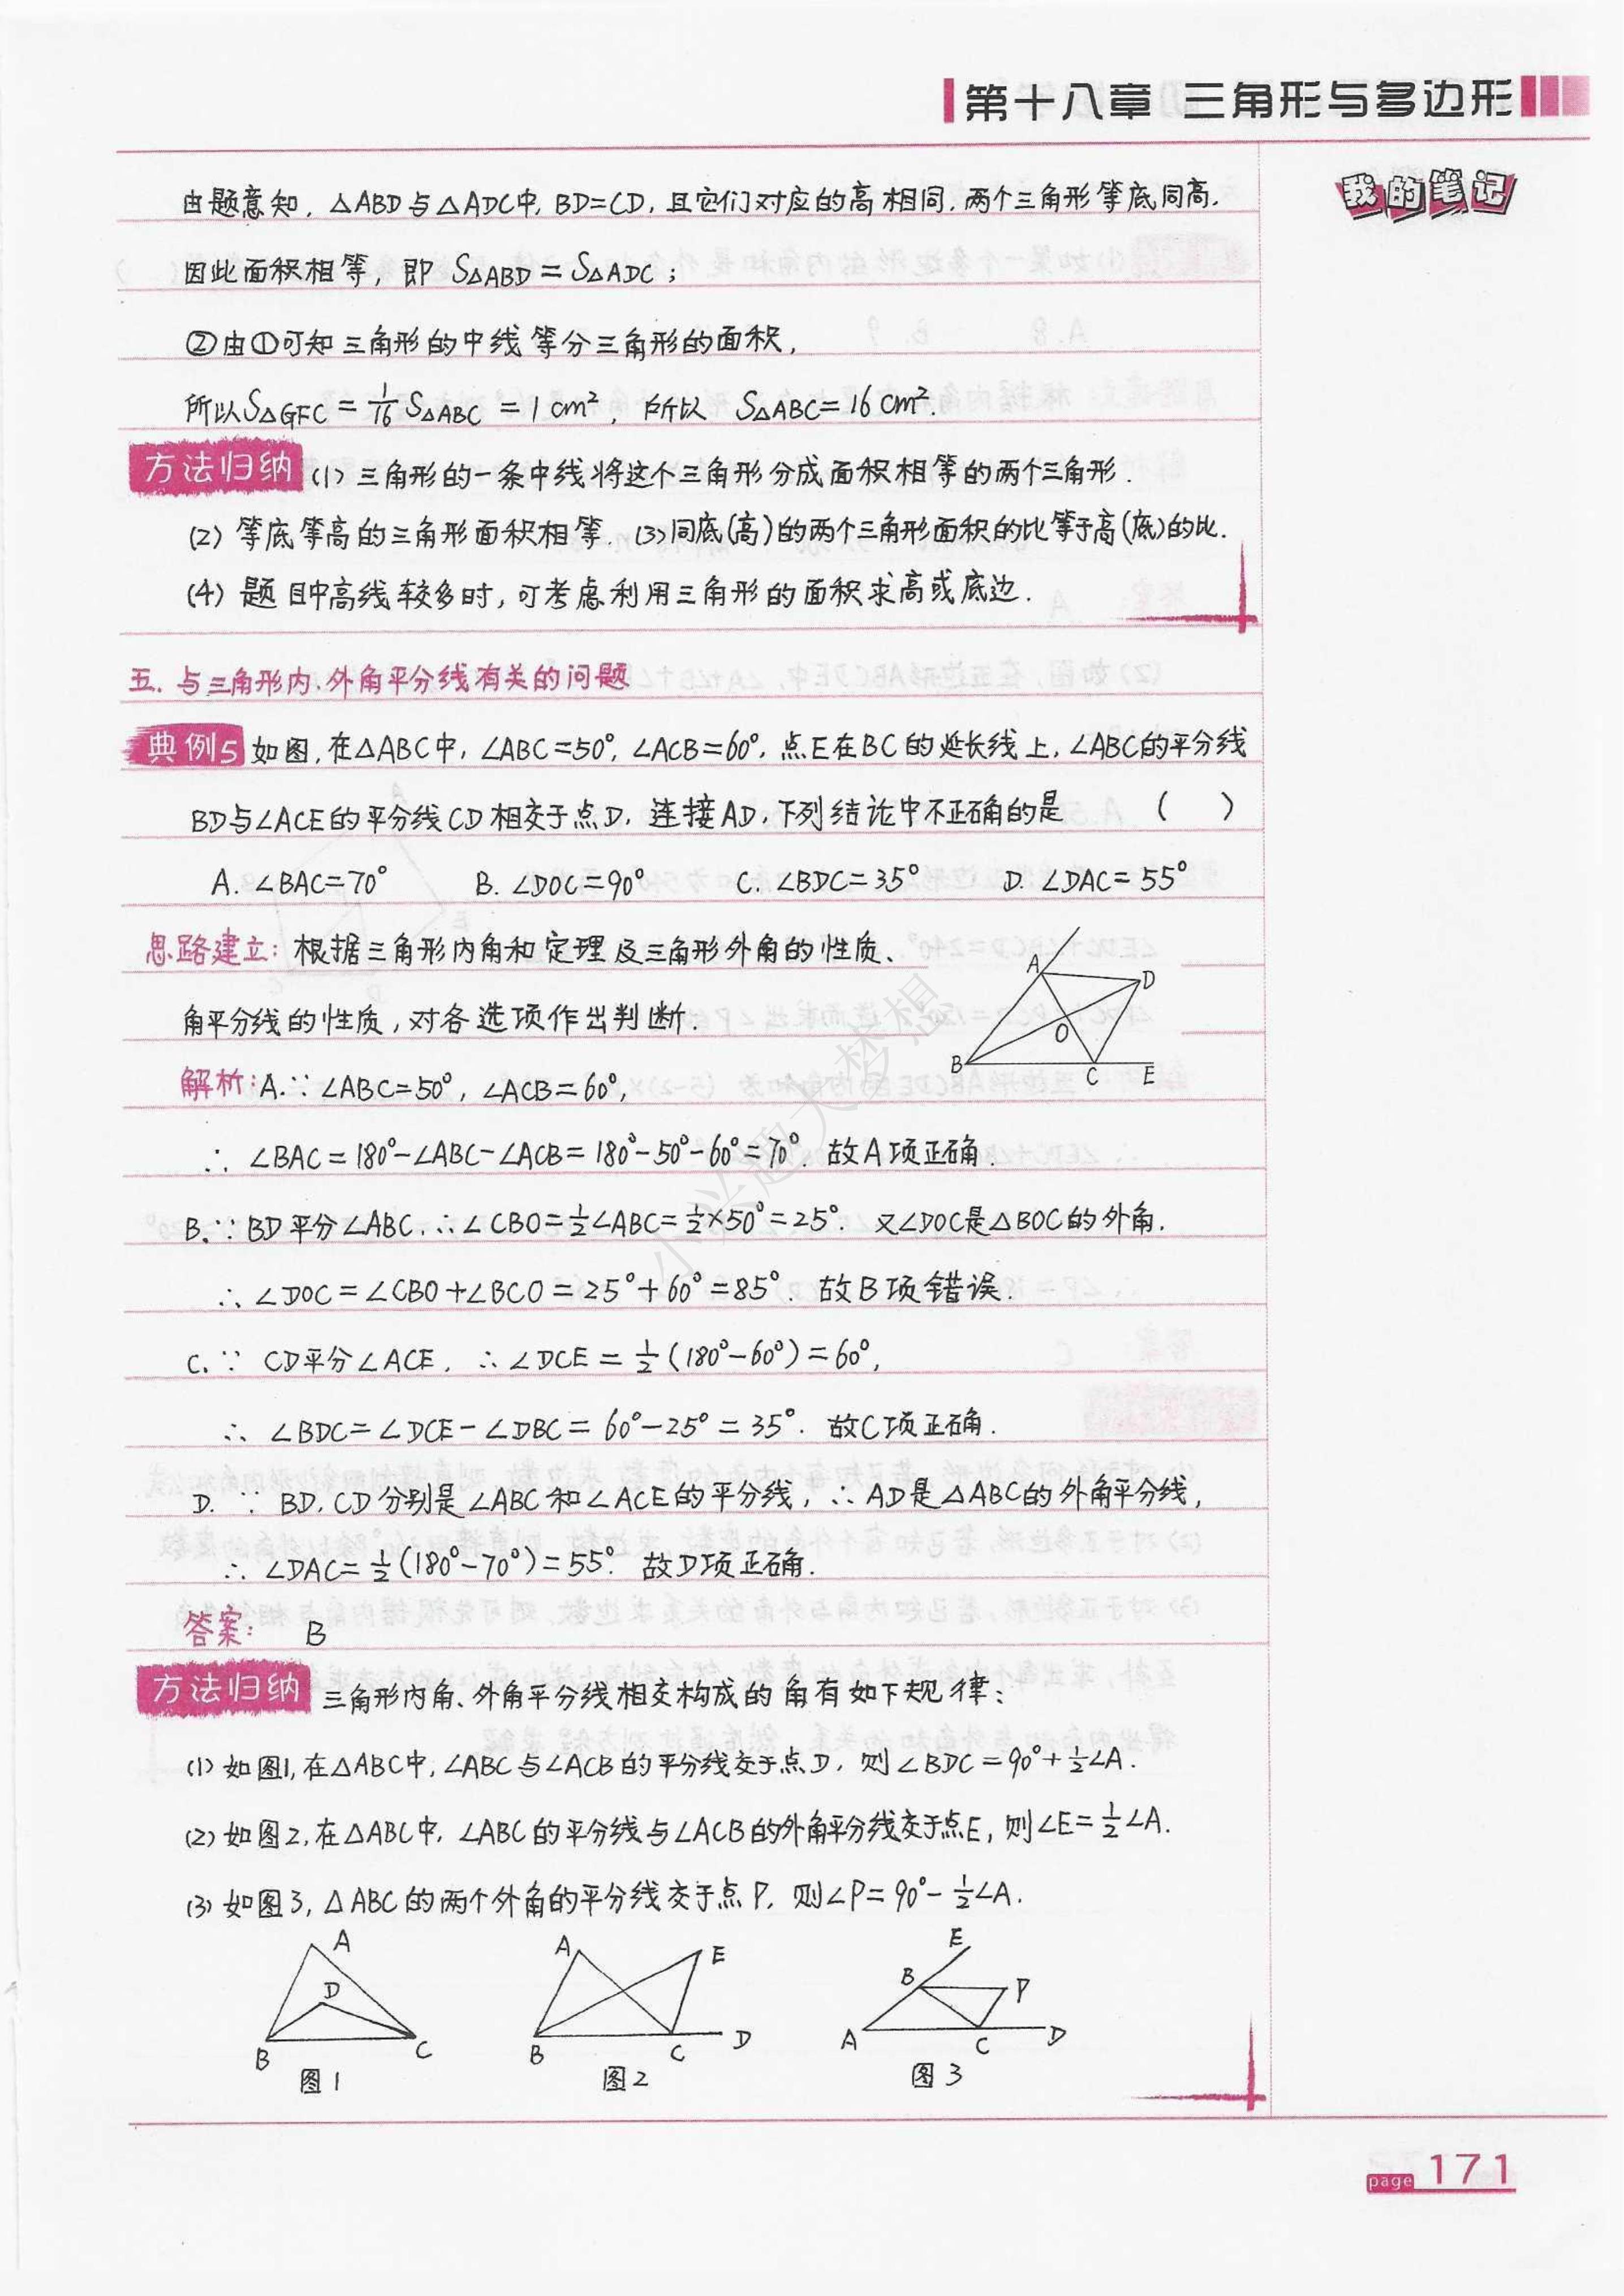 第十八章 三角形与多边形
我的笔记
由题意知，△ABD与△ADC中，BD=CD，且它们对应的高相同，两个三角形等底同高，
因此面积相等，即 S△ABD=S△ADC；
②由①可知三角形的中线等分三角形的面积，
所以S△GFC=1/16 S△ABC=1cm²，所以 S△ABC=16cm².
方法归纳 (1) 三角形的一条中线将这个三角形分成面积相等的两个三角形.
(2) 等底等高的三角形面积相等. (3)同底(高)的两个三角形面积的比等于高(底)的比.
(4) 题目中高线较多时，可考虑利用三角形的面积求高或底边.
五. 与三角形内、外角平分线有关的问题
典例5 如图，在△ABC中，∠ABC=50°，∠ACB=60°，点E在BC的延长线上，∠ABC的平分线
BD与∠ACE的平分线CD相交于点D，连接AD，下列结论中不正确的是 （ ）
A. ∠BAC=70° B. ∠DOC=90° C. ∠BDC=35° D. ∠DAC=55°
思路建立：根据三角形内角和定理及三角形外角的性质、
角平分线的性质，对各选项作出判断.
A
D
O
B
C
E
解析：A.∵ ∠ABC=50°，∠ACB=60°，
∴ ∠BAC=180°-∠ABC-∠ACB=180°-50°-60°=70°. 故A项正确.
B.∵ BD平分∠ABC，∴∠CBO=1/2∠ABC=1/2×50°=25°. 又∠DOC是△BOC的外角，
∴ ∠DOC=∠CBO+∠BCO=25°+60°=85°. 故B项错误.
C.∵ CD平分∠ACE，∴∠DCE=1/2(180°-60°)=60°，
∴ ∠BDC=∠DCE-∠DBC=60°-25°=35°. 故C项正确.
D. ∵ BD，CD分别是∠ABC和∠ACE的平分线，∴AD是△ABC的外角平分线，
∴ ∠DAC=1/2(180°-70°)=55°. 故D项正确.
答案： B
方法归纳 三角形内角、外角平分线相交构成的角有如下规律：
(1) 如图1，在△ABC中，∠ABC与∠ACB的平分线交于点D，则∠BDC=90°+1/2∠A.
(2) 如图2，在△ABC中，∠ABC的平分线与∠ACB的外角平分线交于点E，则∠E=1/2∠A.
(3) 如图3，△ABC的两个外角的平分线交于点P，则∠P=90°-1/2∠A.
A
D
B
C
图1
A
E
B
C
D
图2
E
B
P
A
C
D
图3
page 171
小兴趣大梦想